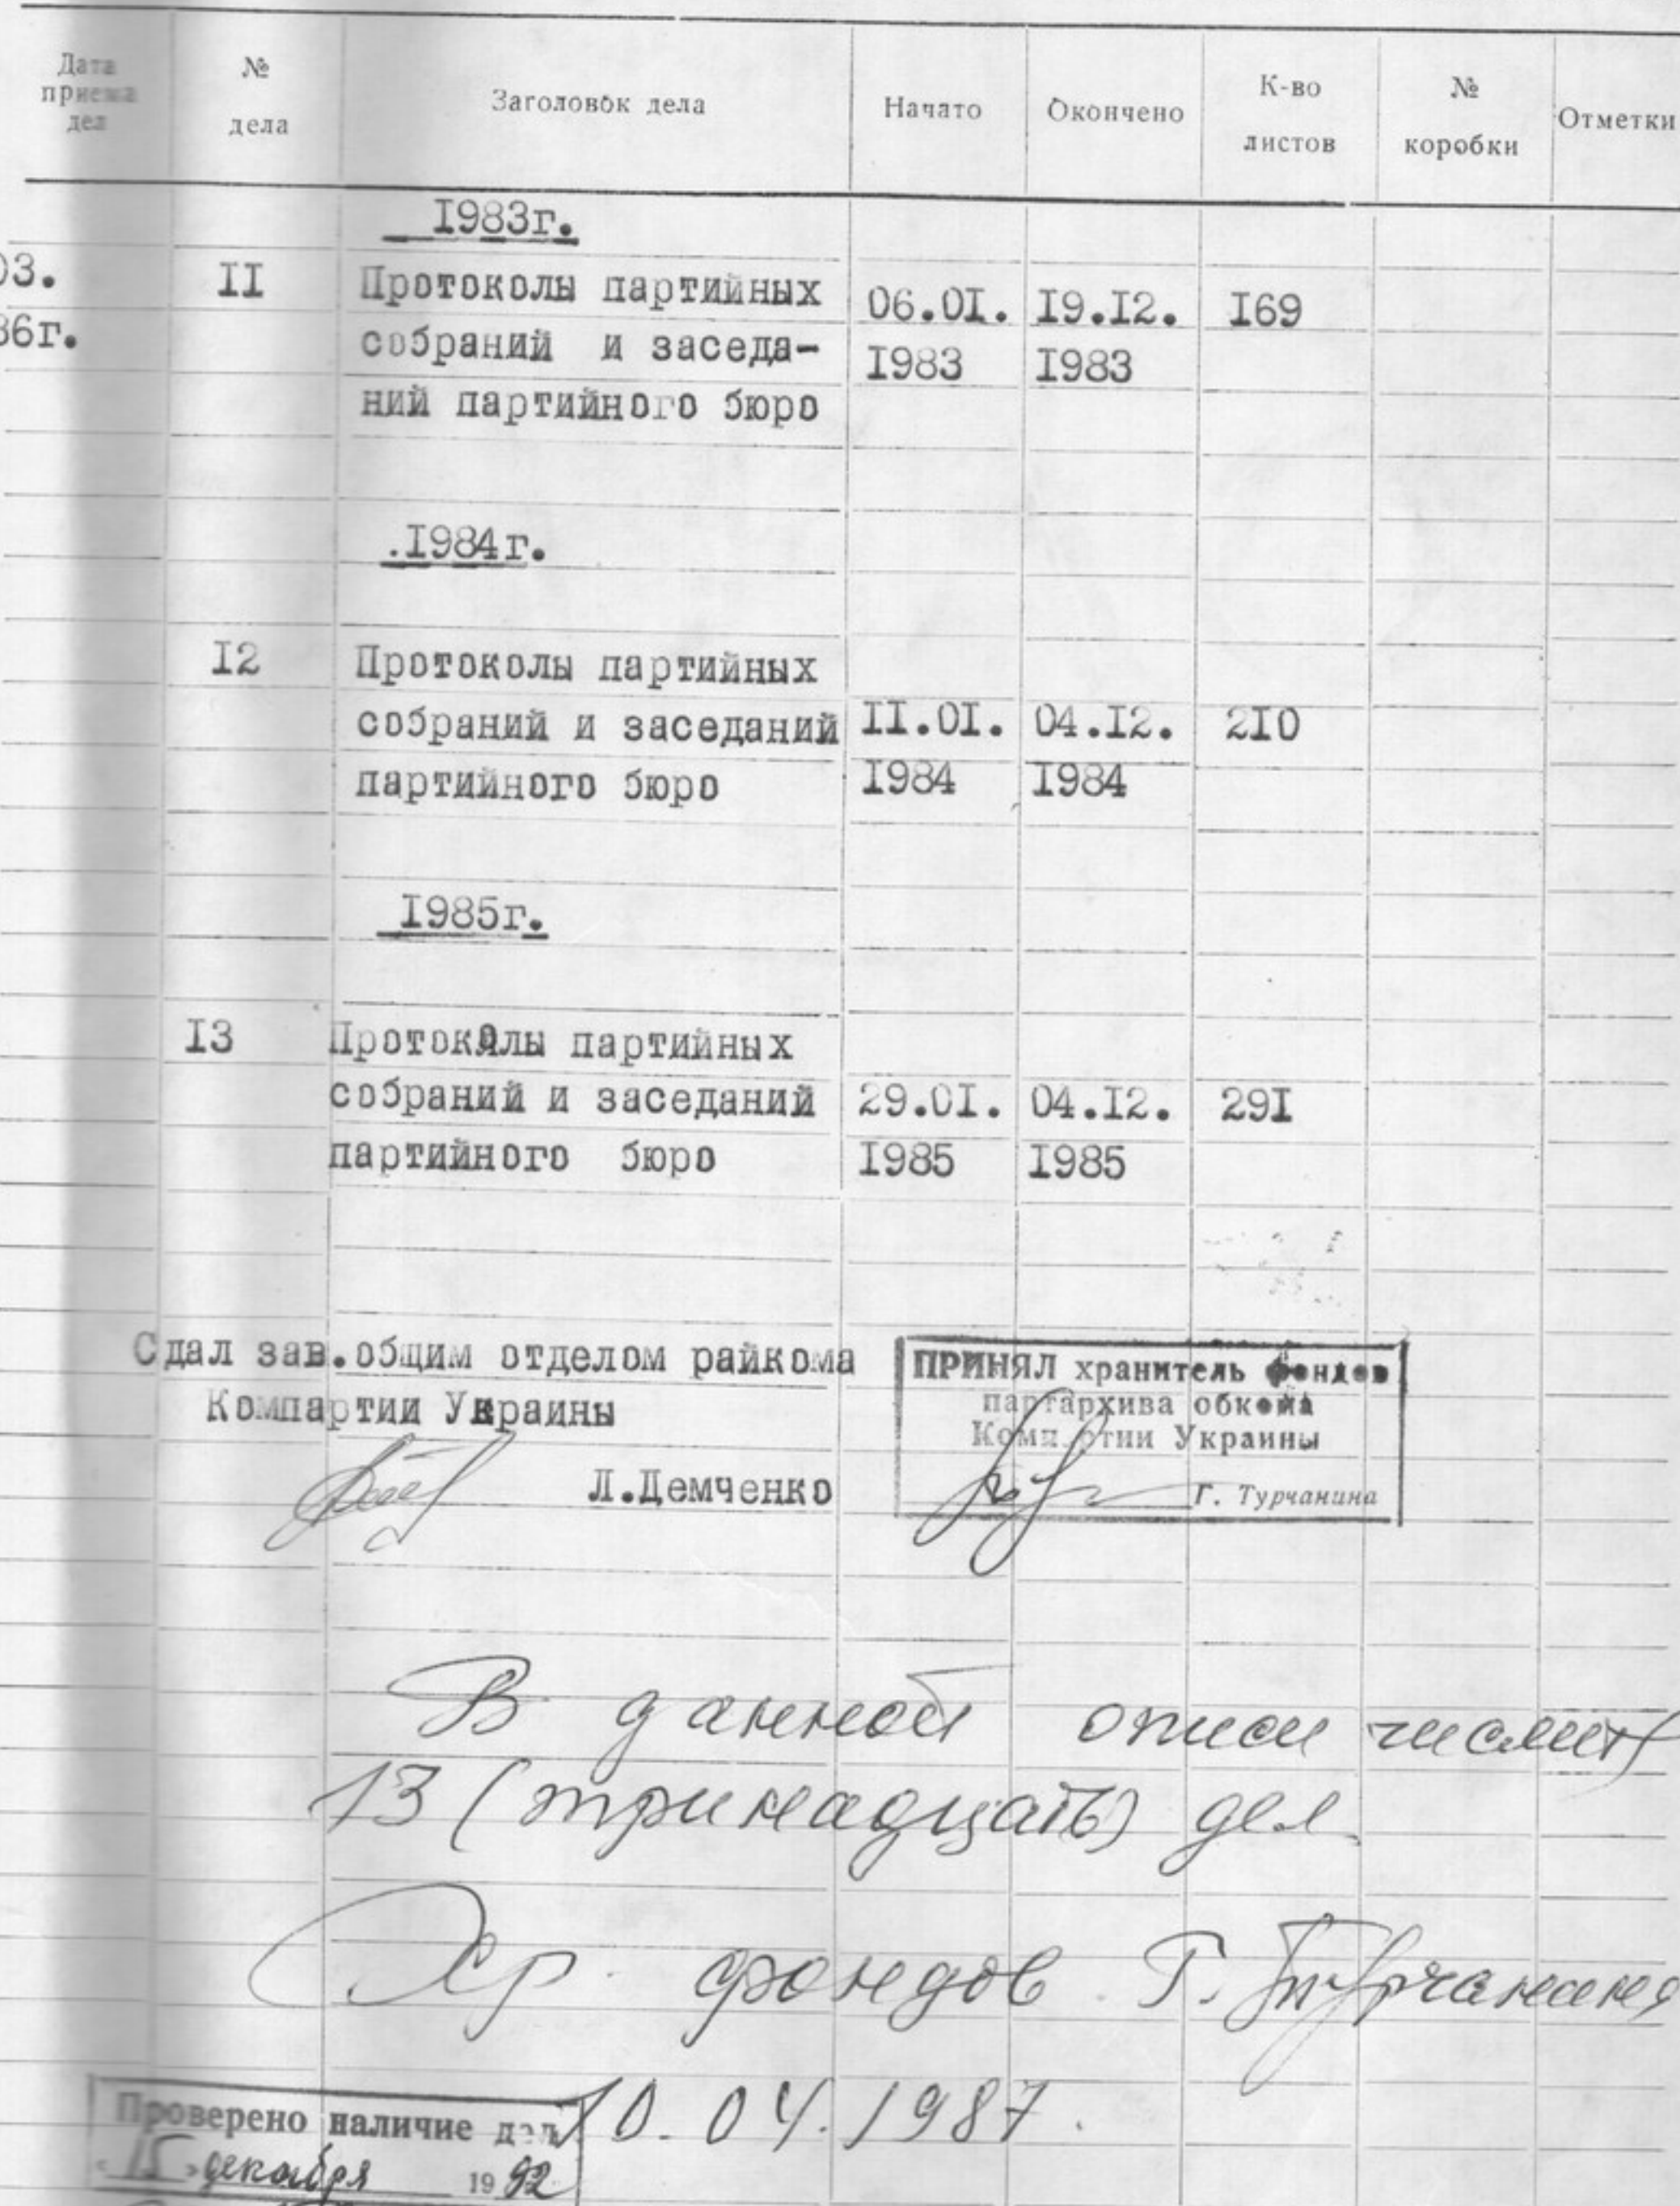 Дата приема дел № дела Заголовок дела Начато Окончено К-во листов № коробки Отметки
1983г.
03. II Протоколы партийных
86г. собраний и заседа- 06.01. I9.I2. I69
ний партийного бюро I983 I983
.I984г.
I2 Протоколы партийных
собраний и заседаний II.0I. 04.I2. 2I0
партийного бюро I984 I984
I985г.
I3 Протоколы партийных
собраний и заседаний 29.0I. 04.I2. 29I
партийного бюро I985 I985
Сдал зав.общим отделом райкома
Компартии Украины
Л.Демченко
ПРИНЯЛ хранитель фондов
партархива обкома
Компартии Украины
Г. Турчанина
В данной описи числит
13 (тринадцать) дел.
Хр. фондов Г. Турчанина
10.04.1987.
Проверено наличие дел
«15» декабря 1992